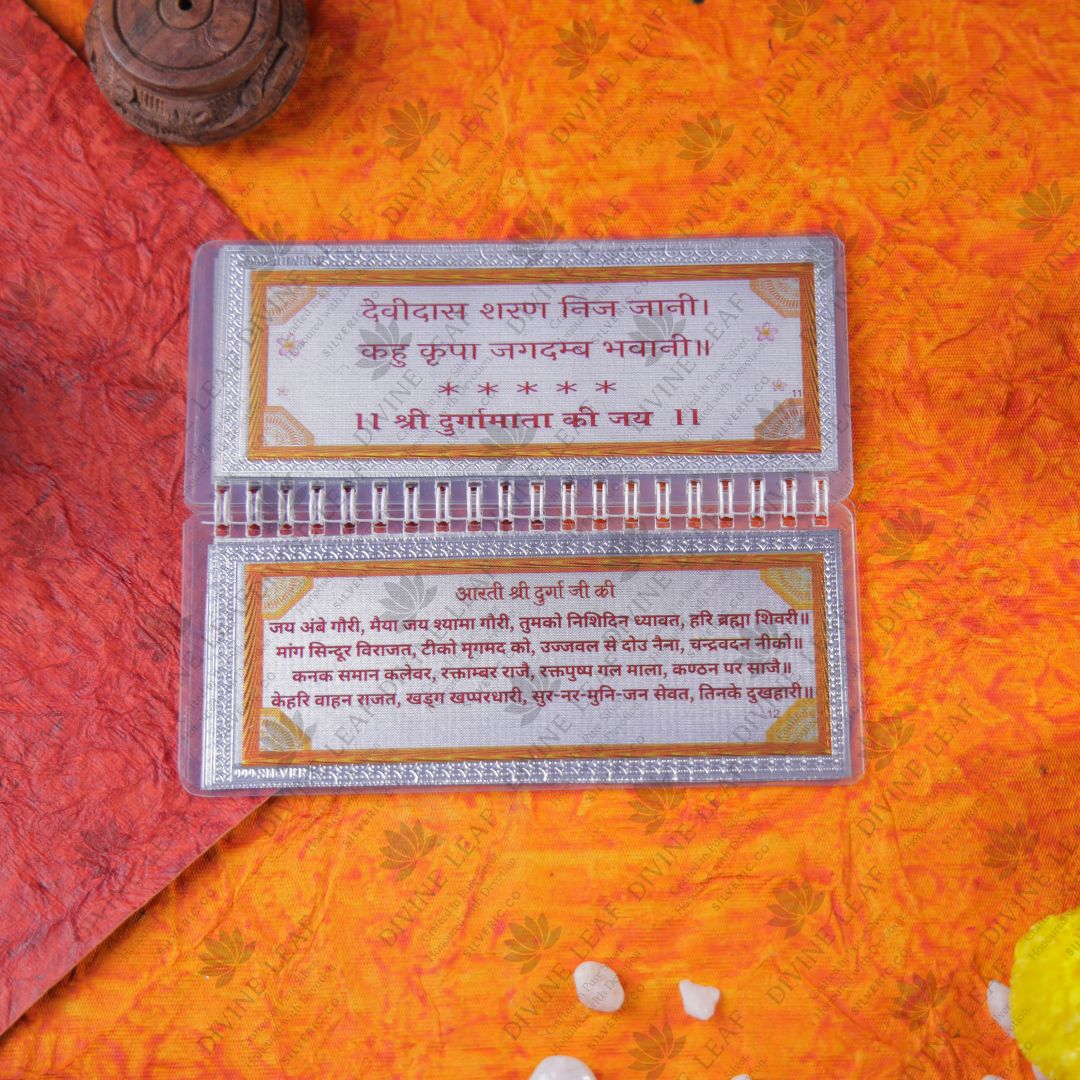 देवीदास शरण निज जानी।
कहु कृपा जगदम्ब भवानी॥
* * * * *
11
।। श्री दुर्गामाता की जय ।।
आरती श्री दुर्गा जी की
जय अंबे गौरी, मैया जय श्यामा गौरी, तुमको निशिदिन ध्यावत, हरि ब्रह्मा शिवरी॥
मांग सिन्दूर विराजत, टीको मृगमद को, उज्जवल से दोउ नैना, चन्द्रवदन नीको॥
कनक समान कलेवर, रक्ताम्बर राजै, रक्तपुष्प गल माला, कण्ठन पर साजै॥
केहरि वाहन राजत, खड्ग खप्परधारी, सुर-नर-मुनि-जन सेवत, तिनके दुखहारी॥
12
999 SILVER
DIVINE LEAF
Crafted in Pure Silver,
Honoured with Devotion.
SILVERIC.CO